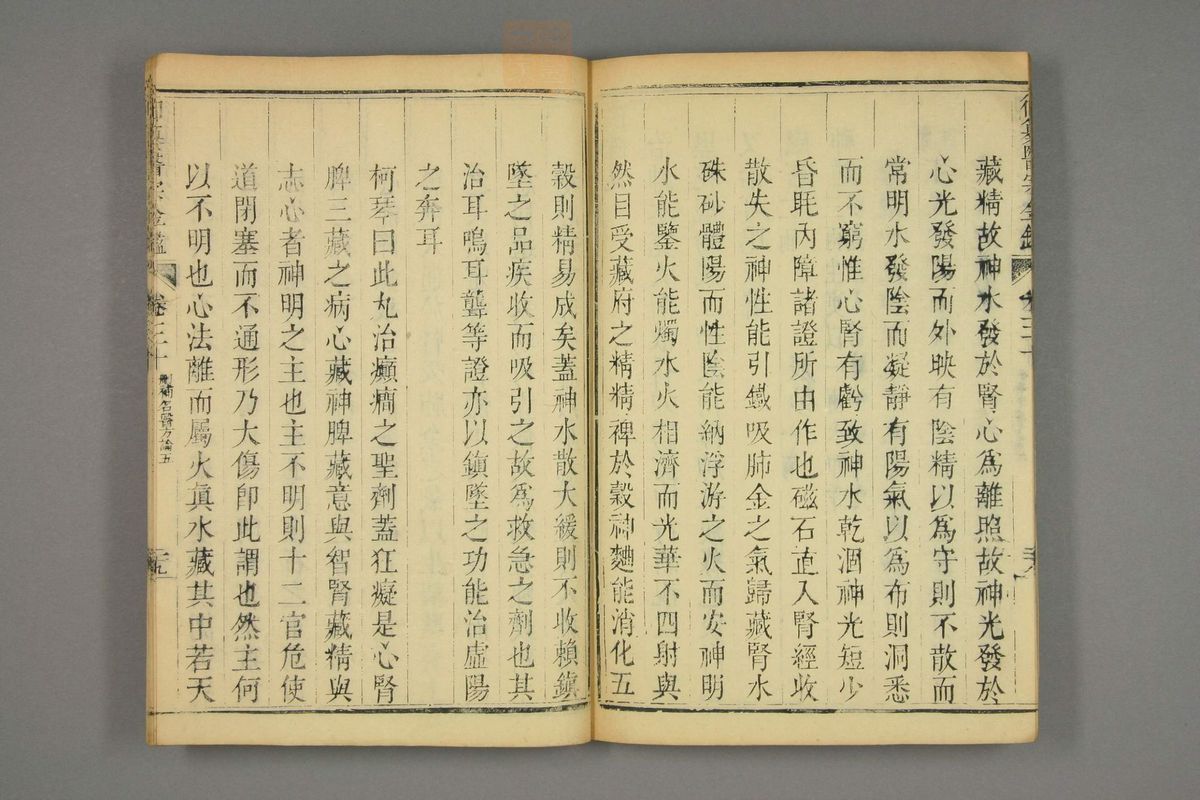 藏精故神水發於腎心爲離照故神光發於
心光發陽而外映有陰精以爲守則不散而
常明水發陰而凝靜有陽氣以爲布則洞悉
而不窮惟心腎有虧致神水乾涸神光短少
昏眊內障諸證所由作也磁石直入腎經收
散失之神性能引鐵吸肺金之氣歸藏腎水
硃砂體陽而性陰能納浮游之火而安神明
水能鑒火能燭水火相濟而光華不四射與
然目受藏府之精精裨於穀神麯能消化五
穀則精易成矣蓋神水散大緩則不收賴鎮
墜之品疾收而吸引之故爲救急之劑也其
治耳鳴耳聾等證亦以鎮墜之功能治虛陽
之奔耳
柯琴曰此丸治癲癎之聖劑蓋狂癡是心腎
脾三藏之病心藏神脾藏意與智腎藏精與
志心者神明之主也主不明則十二官危使
道閉塞而不通形乃大傷卽此謂也然主何
以不明也心法離而屬火眞水藏其中若天
卷三十
刪補名醫方論五